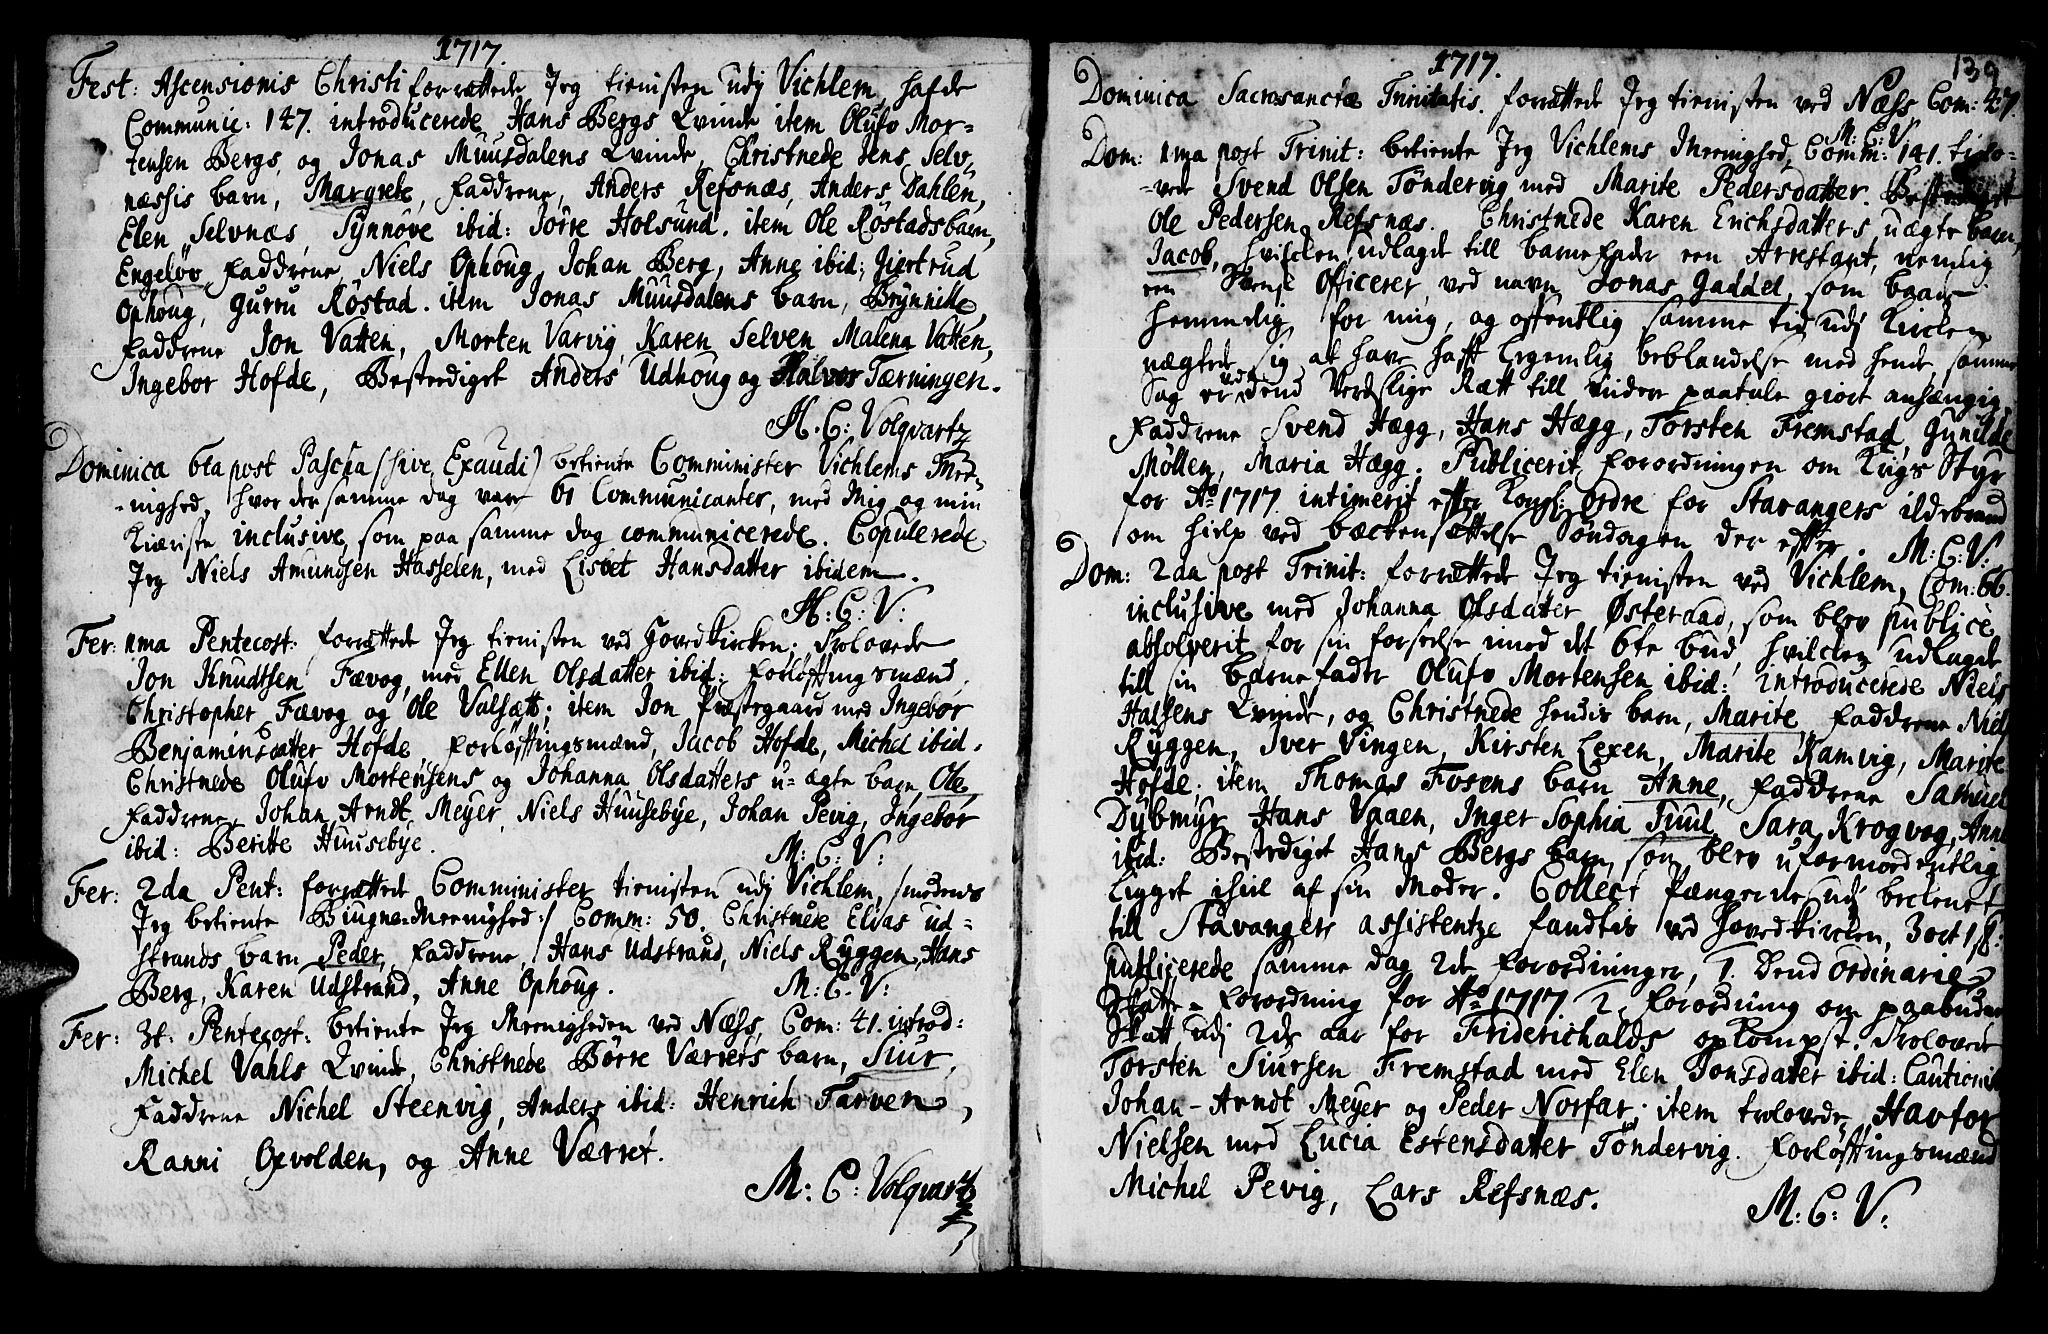 1717.
Fest: Ascensionis Christi forrettede Jeg tienisten udj Vichlem, hafde
Communic: 147. introducerede Hans Bergs Qvinde item Olufv Mor-
tensen Bergs, og Jonas Muusdalens Qvinde, Christnede Jens Selv-
næssis barn, Margrete, faddrene, Anders Refsnæs, Anders Dahlen,
Elen Selvnæs, Synnøve ibid: Søire Holsund. item Ole Røstads barn,
Engeløv faddrene, Niels Ophoug, Johan Berg, Anne ibid; Giertrud
Ophoug, Gurru Røstad. item Jonas Muusdalens barn, Brynnille,
faddrene Jon Vatten, Morten Varvig, Karen Selven Malena Vatten,
Ingebor Hofde, Besterdiget Anders Udhoug og Halvor Tærningen.
M. C: Volqvartz
Dominica 6ta post Pascha (sive Exaudi) betiente Comminister Vichlems Meed-
-nighed, hvor der samme dag vare 61 Communicanter, med Mig og min
Kiæriste inclusive, som paa samme dag communicerede. Copulerede
Jeg Niels Amundsen Hasselen, med Lisbet Hansdatter ibidem.
M: C: V:
Fer: 1ma Pentecost: forrettede Jeg tienisten ved Hovedkircken; Trolovede
Jon Knudtsen Fævog, med Ellen Olsdatter ibid: forløftingsmænd,
Christopher Fævog og Ole Valsætt; item Jon Præstegaard med Ingebor
Benjaminsdatter Hofde, forløftingsmænd, Jacob Hofde, Michel ibid.
Christnede Olufv Mortensens og Johanna Olsdatters u-ægte barn, Ole,
faddrene, Johan Arndt Meyer, Niels Huusebye, Johan Pevig, Ingebor
ibid: Beritte Huusebye.
M: C: V:
Fer: 2da Pent: forrettede Comminister tienisten udj Vichlem, /: medens
Jeg betiente Biugne-Meenighed:/ Comm: 50. Christnede Elias Ud-
strands barn Peder, faddrene, Hans Udstrand, Niels Ryggen, Hans
Berg, Karen Udstrand, Anne Ophoug.
M: C. V:
Fer: 3t. Pentecost: betiente Jeg Meenigheden ved Næss, Com: 41. introd:
Michel Vahls Qvinde, Christnede Børre Værrets barn, Siur,
Faddrene Nichel Steenvig, Anders ibid: Henrich Tarven,
Ranni Opvolden, og Anne Værret.
M: C: Volqvartz
1717.
139
Dominica Sacrosanctæ Trinitatis. forrettede Jeg tienisten ved Næss Com: 47.
M: C: V
Dom: 1ma post Trinit: betiente Jeg Vichlems Meenighed, Comm: 141. trolo-
-vede Svend Olsen Tøndervig med Marite Pedersdatter. Besterdiget
Ole Pedersen Refsnæs. Christnede Karen Erichsdatters uægte barn,
Jacob, hvilcken udlagde till barnefader een Arrestant, nemlig
een Svensk Officerer, ved navn Jonas Gaddel, som baade
hemmelig for mig, og offentlig samme tid udj Kircken
nægtede sig at have hafft legemlig beblandelse med hende, samme
Sag er ved dend Verdslige Rætt till videre paatale giort anhængig
Faddrene Svend Hægg, Hans Hægg, Torsten Fremstad, Gunilde
Møllen, Maria Hægg. Publicerit forordningen om Krigs Styr
for Ao 1717. intimerit efter Kongl: Ordre for Stavangers ildebrand
om hielp ved bæckensættelse Søndagen der efter.
M: C: V:
Dom: 2da post Trinit: forrettede Jeg tienisten ved Vichlem, Com: 66.
inclusive med Johanna Olsdatter Østeraad, som blev publice
absolverit for sin forseelse imod det 6te bud, hvilcken udlagde
till sin barnefader Olufv Mortensen ibid: introducerede Niels
Halsens Qvinde, og Christnede hendis barn, Marite, faddrene Niels
Ryggen, Iver Vingen, Kirsten Lexen, Marite Kamvig, Marite
Hofde; item Thomas Fosens barn Anne, faddrene Samuel
Dybmyr, Hans Vaaen, Inger Sophia Juul, Sara Krogvog, Anne
ibid: Besterdiget Hans Bergs barn, som blev uformodentlig
ligget ihiel af sin Moder. Collect Pængerne udj beckenet
till Stavangers assistentze fandtis ved Hovedkircken, 3 ort 18:
Publicerede samme dag 2de forordninger, 1. Dend ordinarie
Skatte-forordning for Ao 1717. 2, forordning om paabuden
Skatt udj 2de aar for Friderichalds opkompst. Trolovede
Torsten Siursen Fremstad med Elen Jonsdatter ibid: Cautionist
Johan-Arndt Meyer og Peder Norfar; item trolovede, Havtor
Nielsen med Lucia Estensdatter Tøndervig. forløfftingsmænd
Michel Pevig, Lars Refsnæs.
M: C: V: